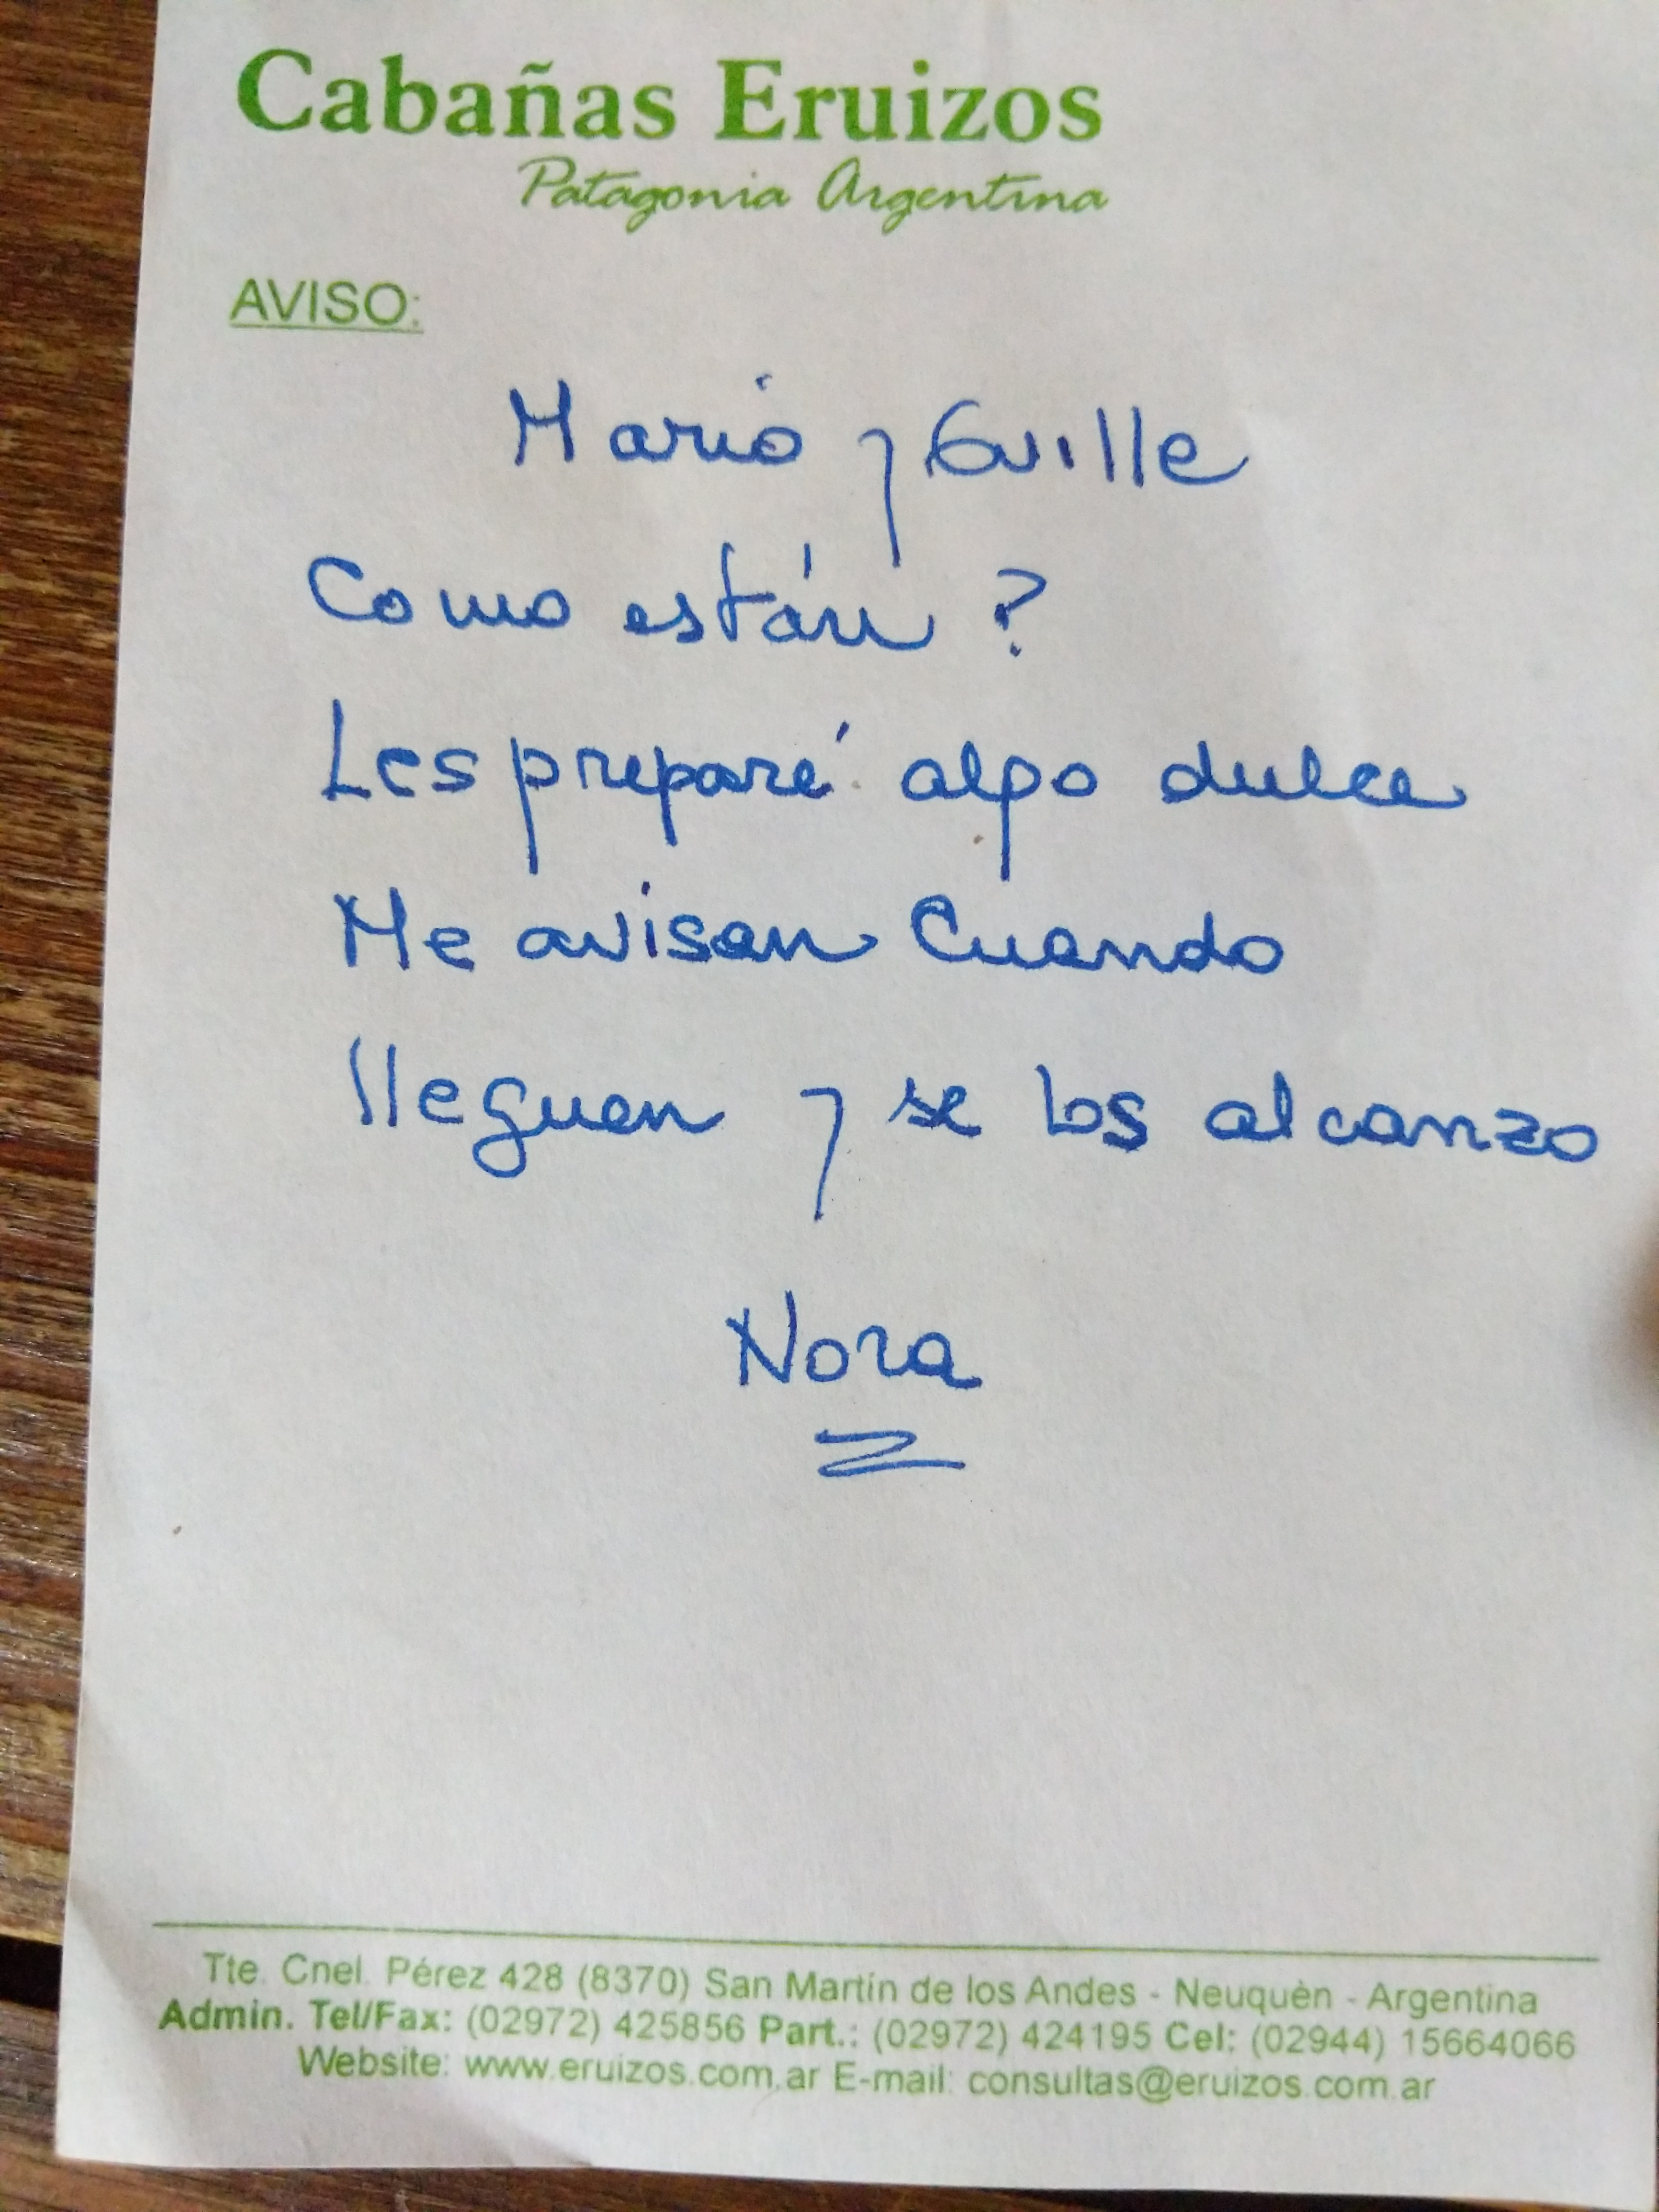 Cabañas Eruizos
Patagonia Argentina
AVISO:
Mario y Guille
Como están ?
Les preparé algo dulce
Me avisan Cuando
lleguen y se los alcanzo
Nora
Tte. Cnel. Pérez 428 (8370) San Martín de los Andes - Neuquèn - Argentina
Admin. Tel/Fax: (02972) 425856 Part.: (02972) 424195 Cel: (02944) 15664066
Website: www.eruizos.com.ar E-mail: consultas@eruizos.com.ar